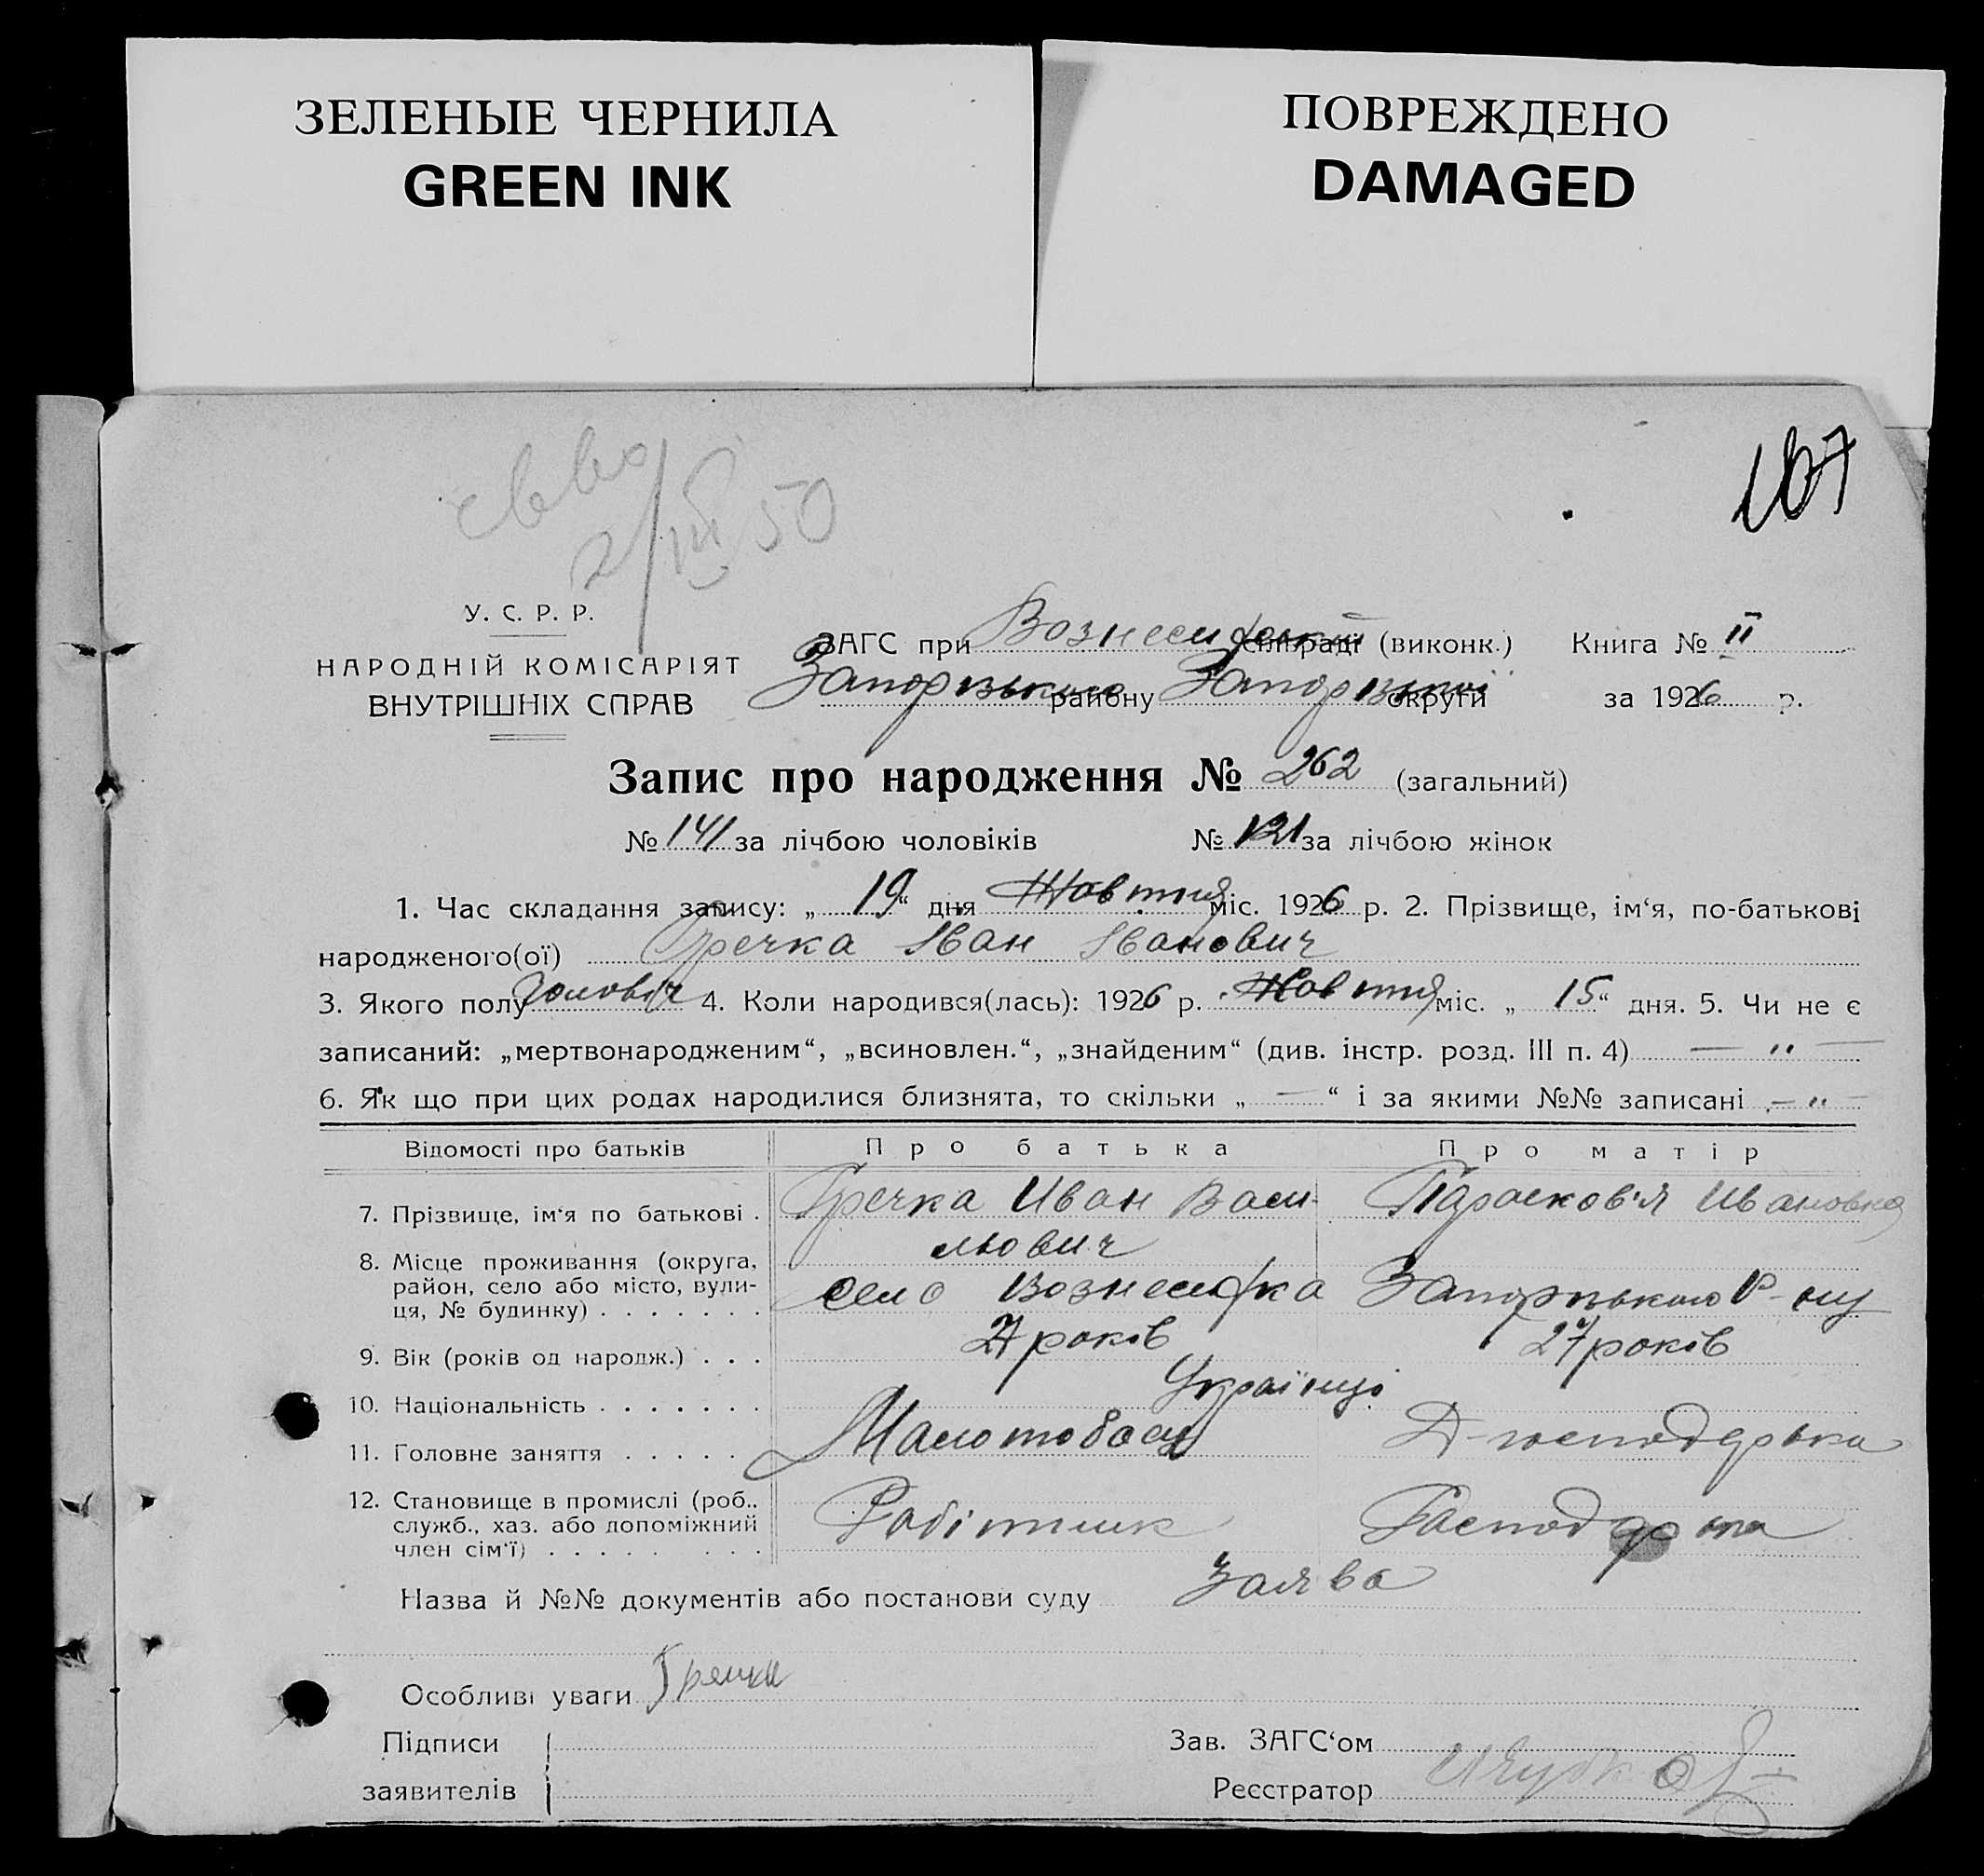 ЗЕЛЕНЫЕ ЧЕРНИЛА
GREEN INK
ПОВРЕЖДЕНО
DAMAGED
107
2/III 50
У. С. Р. Р.
НАРОДНІЙ КОМІСАРІЯТ
ВНУТРІШНІХ СПРАВ
ЗАГС при Вознесенській сільраді (виконк.) Книга № II
Запорізького району Запорізької округи за 1926 р.
Запис про народження № 262 (загальний)
№ 141 за лічбою чоловіків № 121 за лічбою жінок
1. Час складання запису: „ 19 “ дня Жовтня міс. 1926 р. 2. Прізвище, ім‘я, по-батькові
народженого(ої) Гречка Іван Іванович
3. Якого полу чоловіч 4. Коли народився(лась): 1926 р. Жовтня міс. „ 15 “ дня. 5. Чи не є
записаний: „мертвонародженим“, „всиновлен.“, „знайденим“ (див. інстр. розд. III п. 4) — „ —
6. Як що при цих родах народилися близнята, то скільки „ — “ і за якими №№ записані — „ —
Відомості про батьків Про батька Про матір
7. Прізвище, ім‘я по батькові . Гречка Иван Васи- Парасков'я Ивановна
льович
8. Місце проживання (округа,
район, село або місто, вули-
ця, № будинку) . . . . . . . село Вознесенка Запорізького р-ну
9. Вік (років од народж.) . . . 27 років 27 років
10. Національність . . . . . . . Українці
11. Головне заняття . . . . . Молотобоєц Д-господарка
12. Становище в промислі (роб..
служб., хаз. або допоміжний
член сім‘ї) . . . . . . . . Робітник Господарка
Назва й №№ документів або постанови суду Заява
Особливі уваги Гречка
Підписи
заявителів
Зав. ЗАГС‘ом
Реєстратор